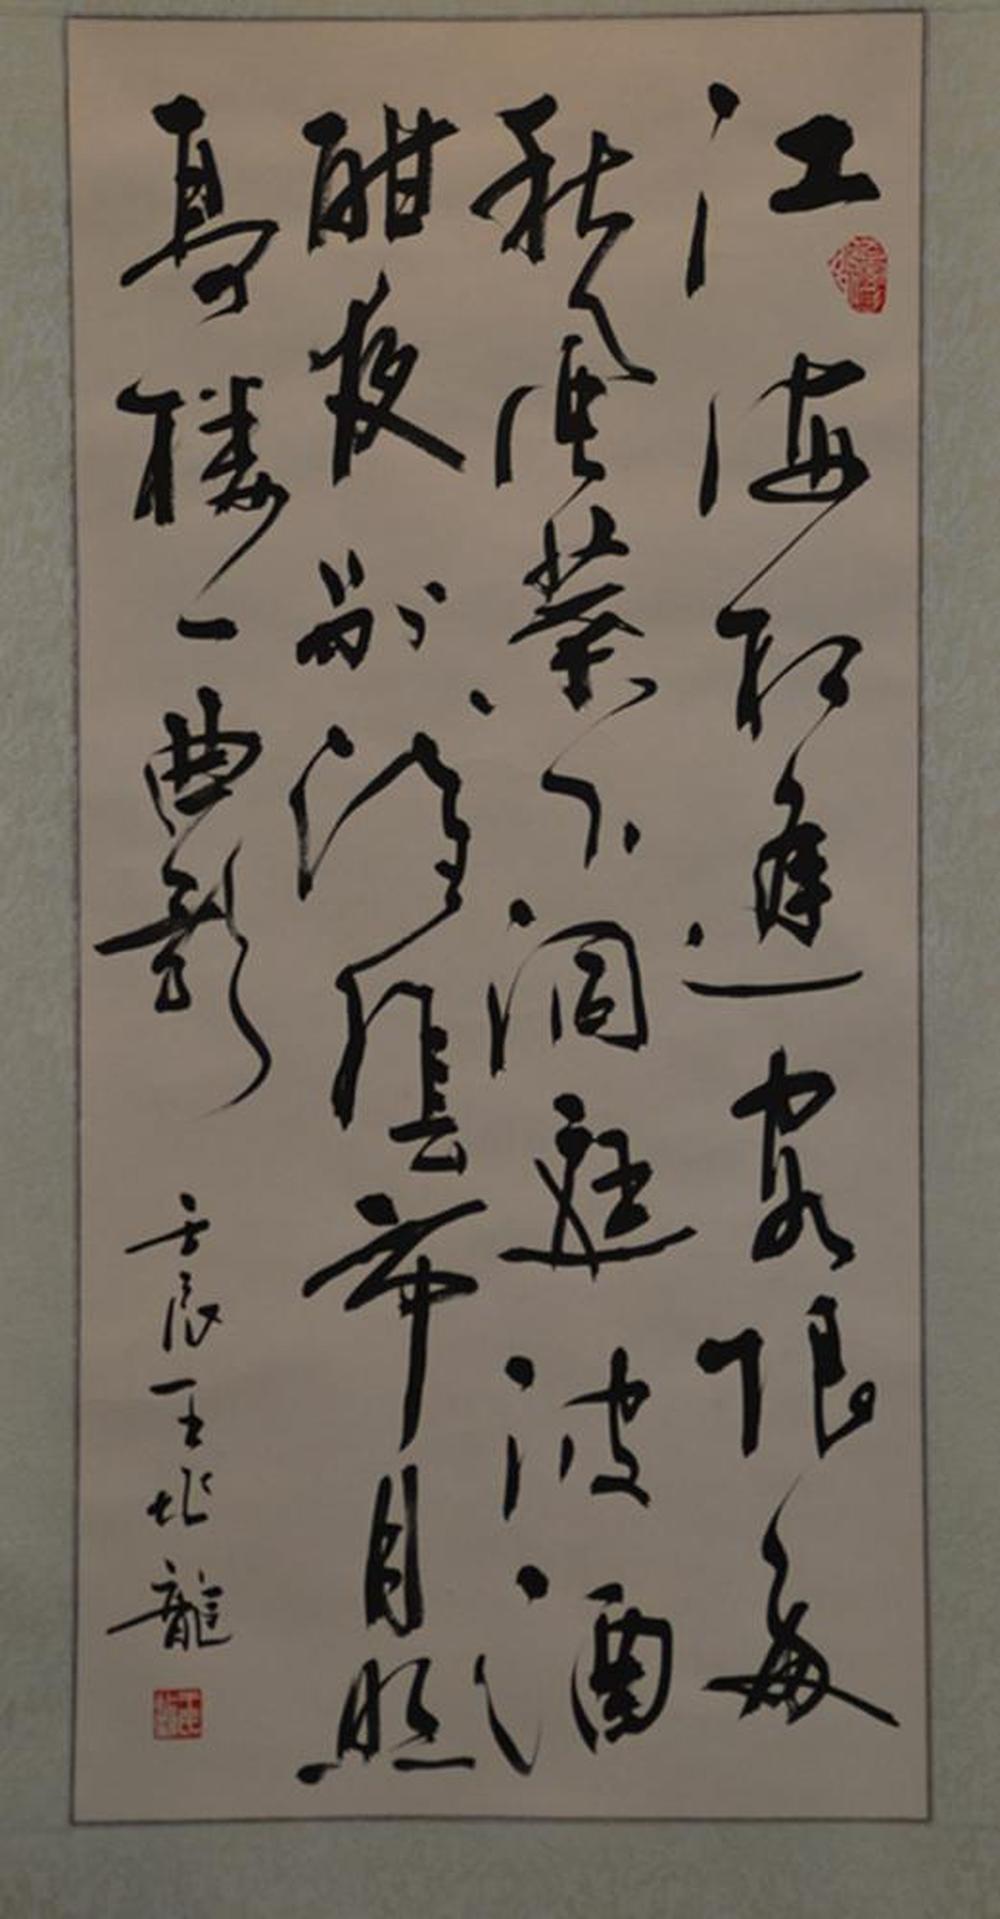 江海相逢客恨多
秋風葉下洞庭波酒
酣夜別淮陰市月照
高樓一曲歌
壬辰王龍